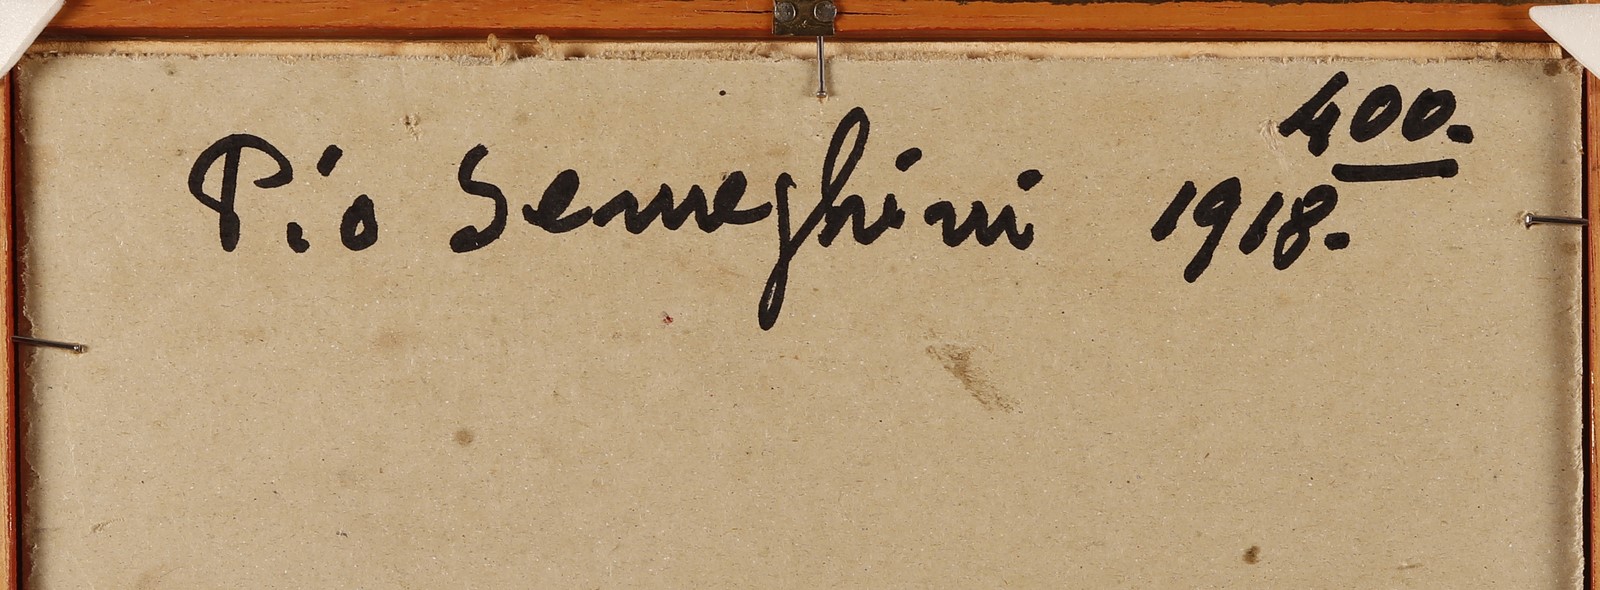 400.
Pio Semeghini 1918.